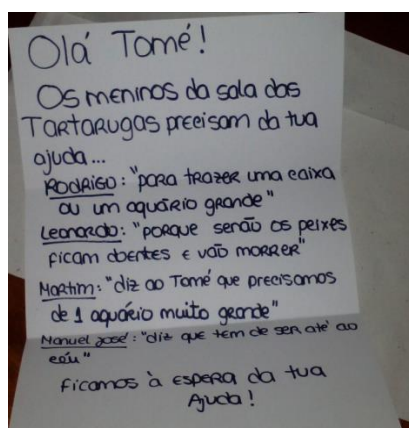 Olá Tomé!
Os meninos da sala das
Tartarugas precisam da tua
ajuda...
Rodrigo: "para trazer uma caixa
ou um aquário grande"
Leonardo: "porque senão os peixes
ficam doentes e vão morrer"
Martim: "diz ao Tomé que precisamos
de 1 aquário muito grande"
Manuel José: "diz que tem de ser até ao
céu"
Ficamos à espera da tua
Ajuda!